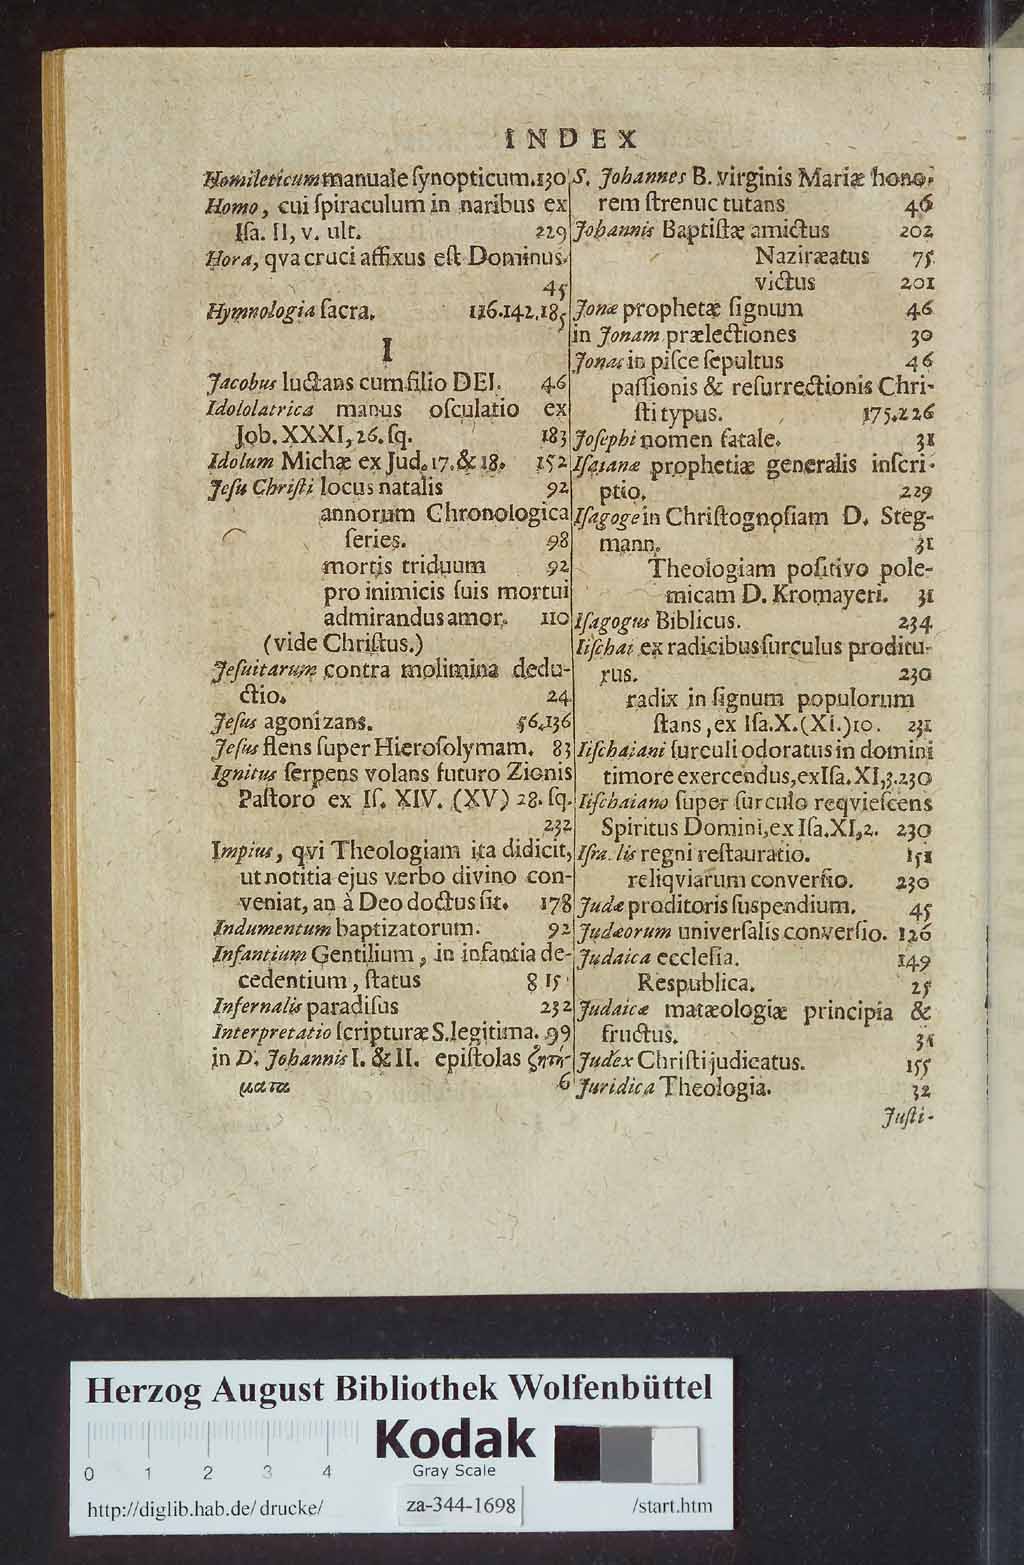 INDEX
Homileticum manuale ſynopticum. 130
Homo, cui ſpiraculum in naribus ex
Iſa. II, v. ult. 229
Hora, qva cruci affixus eſt Dominus.
45
Hymnologia ſacra. 126.142.185
I
Jacobus luctans cum filio DEI. 46
Idololatrica manus oſculatio ex
Job. XXXI, 26. ſq. 183
Idolum Michæ ex Jud. 17. & 18. 152
Jeſu Chriſti locus natalis 92
annorum Chronologica
ſeries. 98
mortis triduum 92
pro inimicis ſuis mortui
admirandus amor. 110
(vide Chriſtus.)
Jeſuitarum contra molimina dedu-
ctio. 24
Jeſus agonizans. 56.136
Jeſus flens ſuper Hieroſolymam. 83
Ignitus ſerpens volans futuro Zionis
Paſtoro ex Iſ. XIV. (XV) 28. ſq.
232
Impius, qvi Theologiam ita didicit,
ut notitia ejus verbo divino con-
veniat, an à Deo doctus ſit. 178
Indumentum baptizatorum. 92
Infantium Gentilium, in infantia de-
cedentium, ſtatus 8 15
Infernalis paradiſus 232
Interpretatio ſcripturæ S. legitima. 99
in D. Johannis I. & II. epiſtolas ζητή-
ματα 6
S. Johannes B. virginis Mariæ hono-
rem ſtrenuc tutans 46
Johannis Baptiſtæ amictus 202
Naziræatus 75
victus 201
Jonæ prophetæ ſignum 46
in Jonam prælectiones 30
Jonas in piſce ſepultus 46
paſſionis & reſurrectionis Chri-
ſti typus. 175.226
Joſephi nomen fatale. 31
Iſaianæ prophetiæ generalis inſcri-
ptio. 229
Iſagoge in Chriſtognoſiam D. Steg-
mann. 31
Theologiam poſitivo pole-
micam D. Kromayeri. 31
Iſagogus Biblicus. 234
Iiſchai ex radicibus ſurculus proditu-
rus. 230
radix in ſignum populorum
ſtans, ex Iſa. X. (XI.) 10. 231
Iiſchaiani ſurculi odoratus in domini
timore exercendus, ex Iſa. XI, 3. 230
Iiſchaiano ſuper ſurculo reqvieſcens
Spiritus Domini, ex Iſa. XI, 2. 230
Iſra lis regni reſtauratio. 151
reliqviarum converſio. 230
Judæ proditoris ſuspendium. 45
Judæorum univerſalis converſio. 126
Judaica eccleſia. 149
Respublica. 25
Judaicæ matæologiæ principia &
fructus. 31
Judex Chriſti judicatus. 155
Juridica Theologia. 32
Juſti-
Herzog August Bibliothek Wolfenbüttel
Kodak
Gray Scale
0 1 2 3 4
http://diglib.hab.de/drucke/ za-344-1698 /start.htm